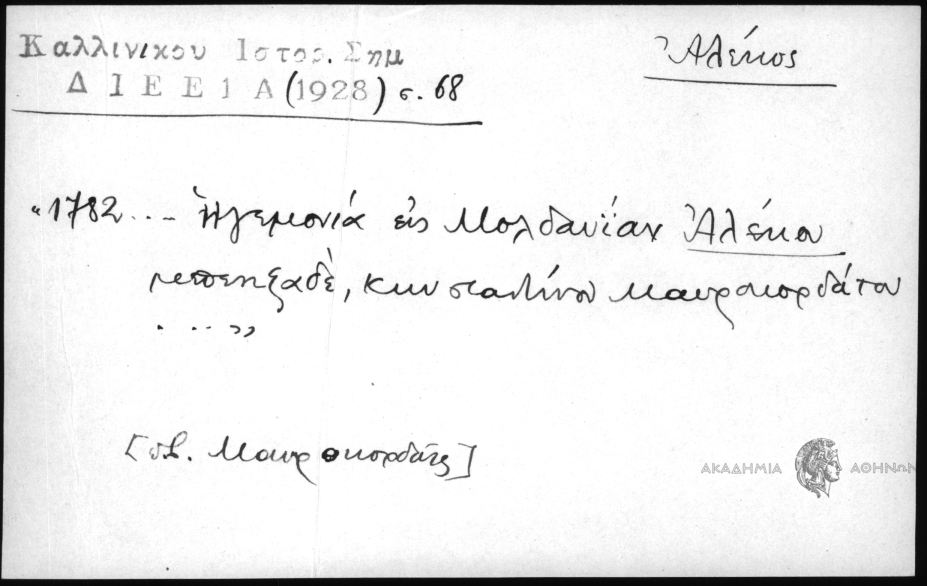 Καλλινικου Ιστορ. Σημ
Ἀλέκος
Δ Ι Ε Ε 1 Α (1928) σ. 68
"1782... Ἡγεμονία εἰς Μολδαυΐαν Ἀλέκου
μπεηζαδὲ, Κωνσταντίνου Μαυροκορδάτου
....»
[πβ. Μαυροκορδάτος]
ΑΚΑΔΗΜΙΑ ΑΘΗΝΩΝ